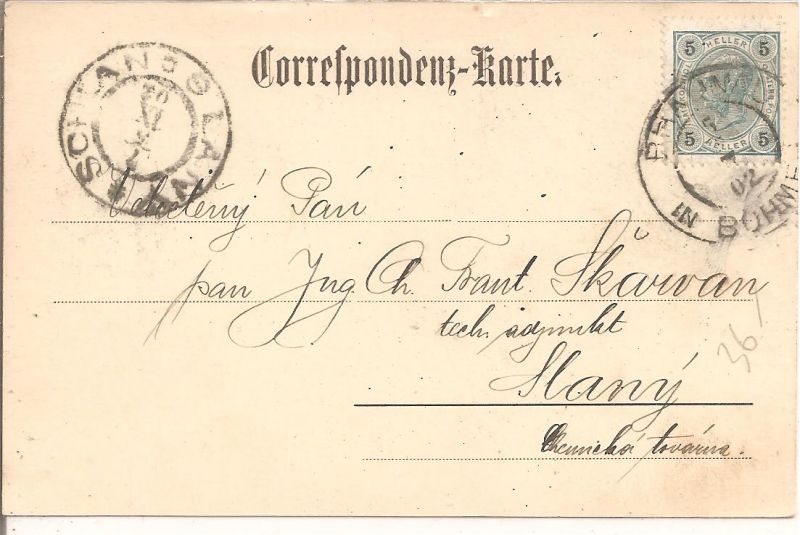 Correspondenz-Karte.
5 HELLER 5
5 HELLER 5
SCHLAN SLANÝ
IN BÖHMEN
02
Velectěný Pán
pan Ing. Ch. Frant. Škarvan
tech. adjunkt
Slaný
Chemická továrna.
36